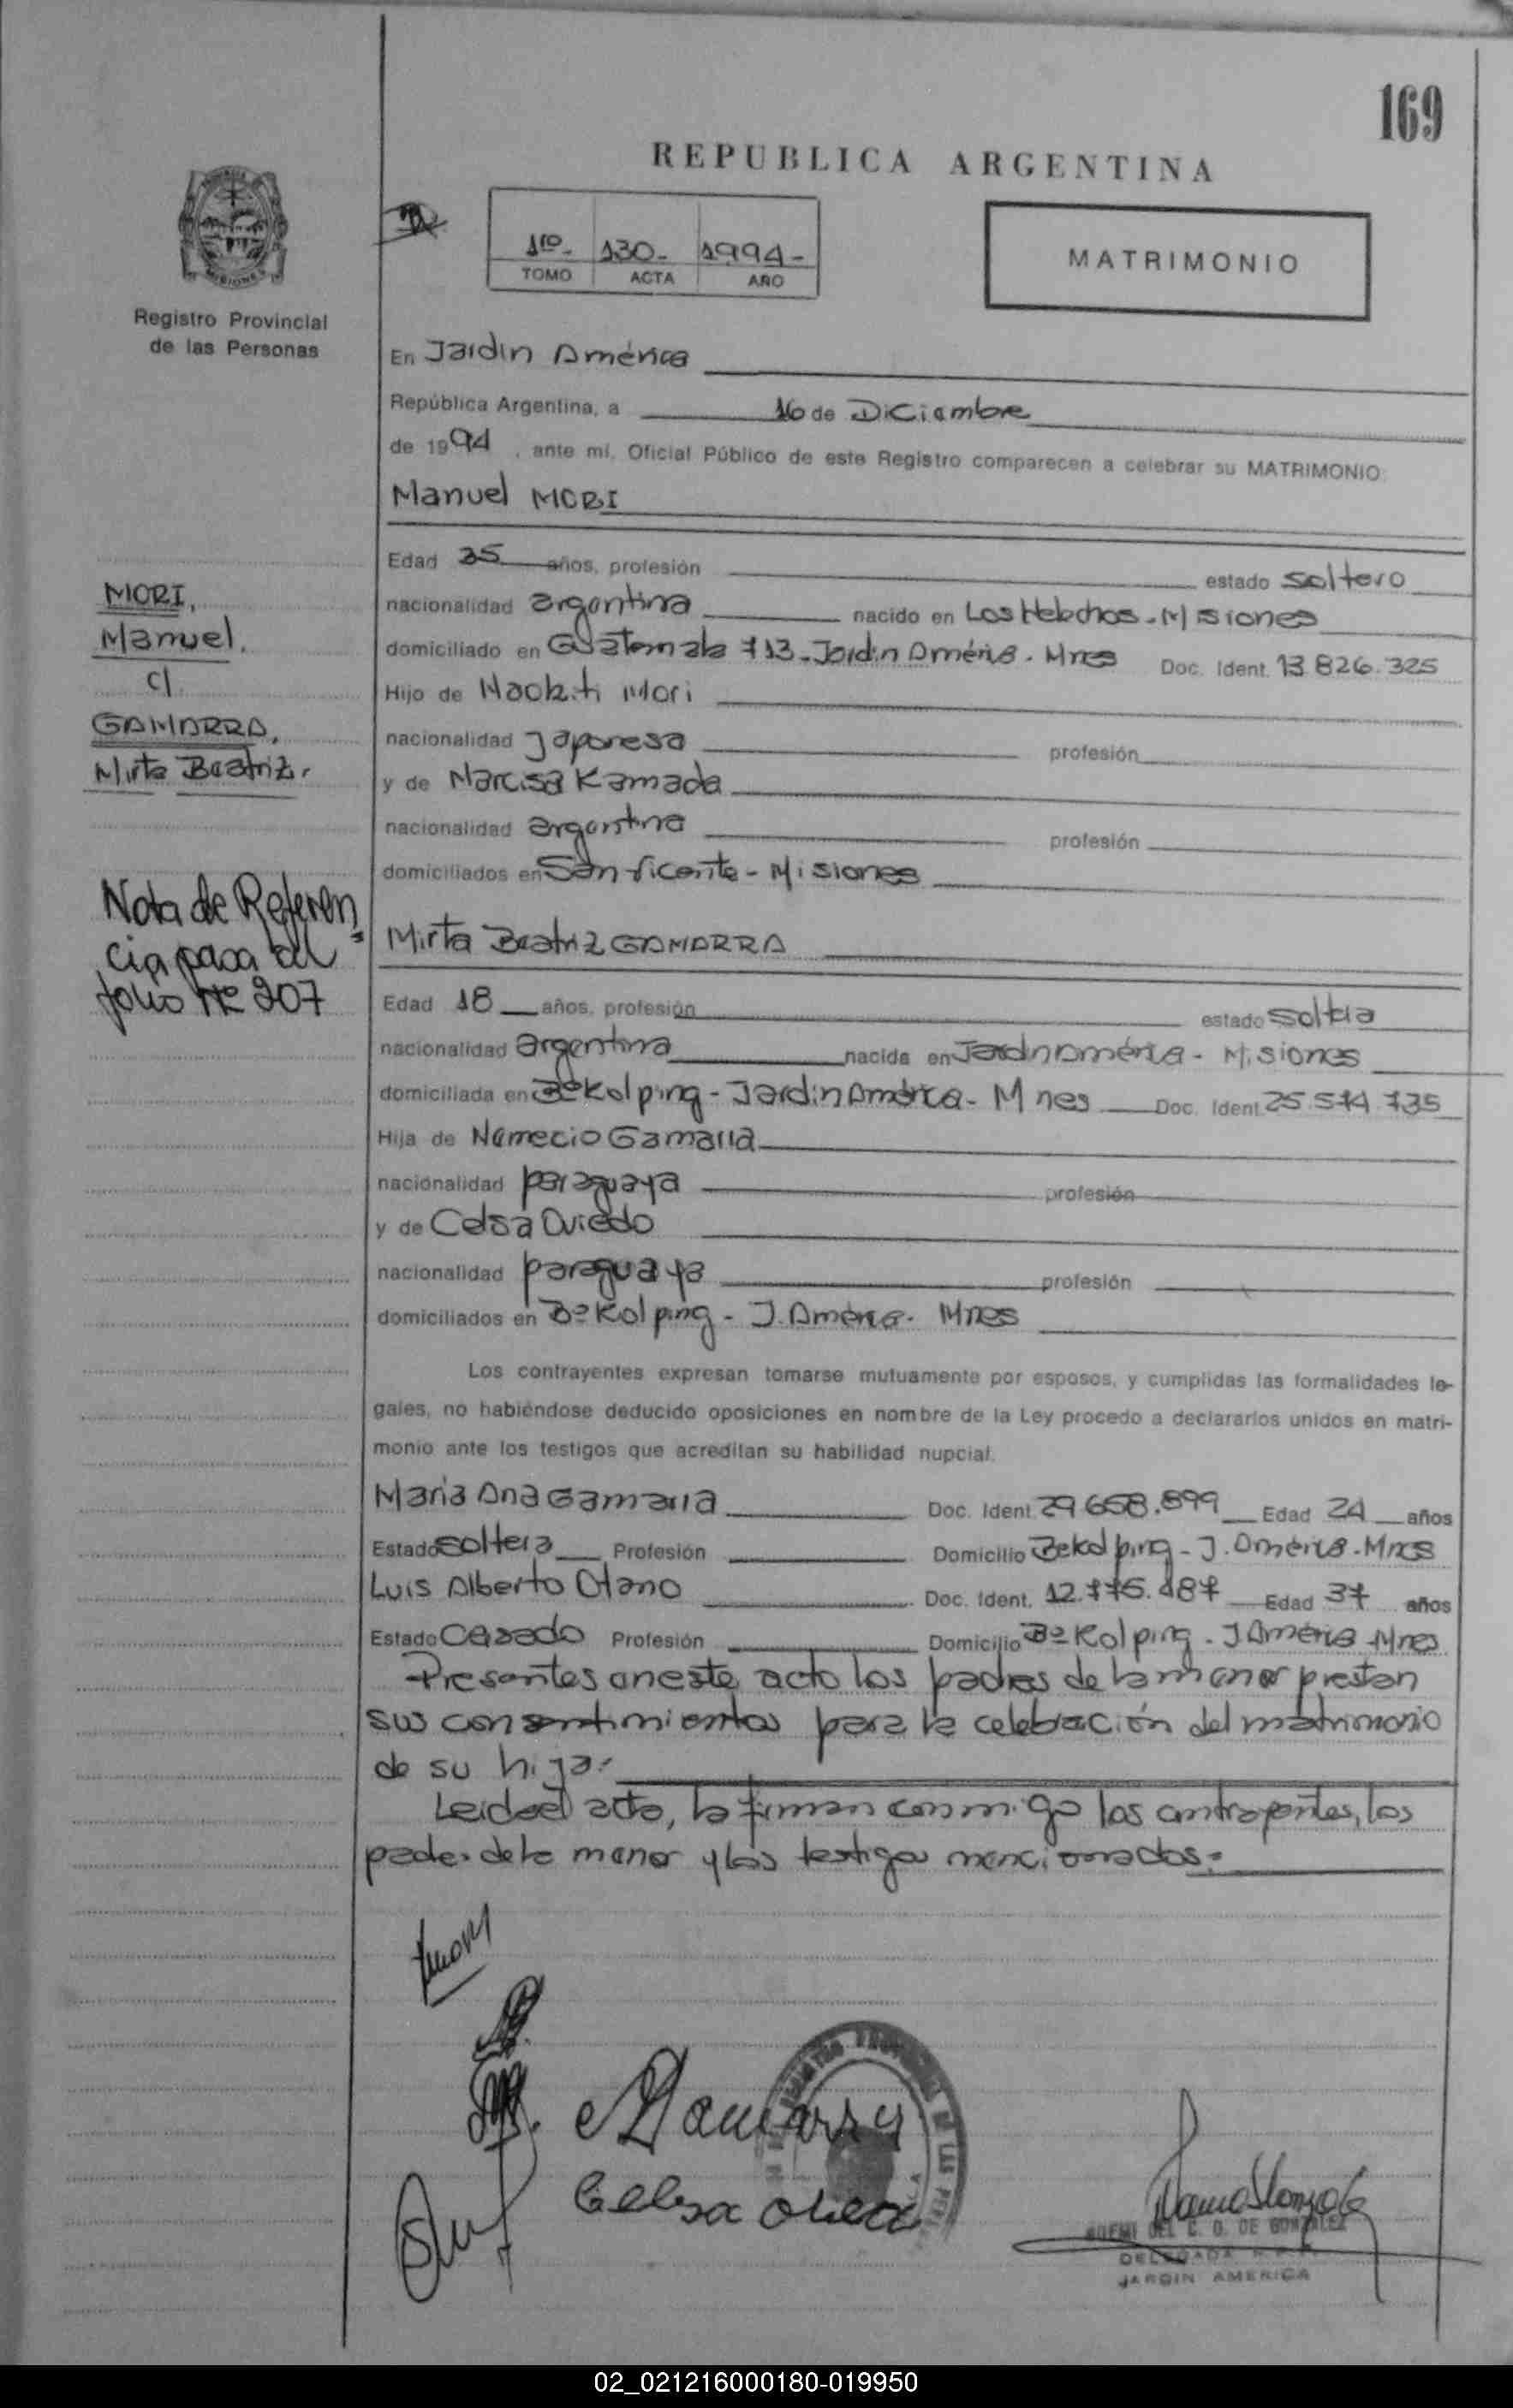 169
REPUBLICA ARGENTINA
1ro- 130- 1994-
TOMO ACTA AÑO
MATRIMONIO
Registro Provincial
de las Personas
En Jardin América
República Argentina, a 16 de Diciembre
de 1994, ante mí, Oficial Público de este Registro comparecen a celebrar su MATRIMONIO:
Manuel MORI
Edad 35 años, profesión estado soltero
nacionalidad argentina nacido en Los Helechos - Misiones
domiciliado en Guatemala 713 - Jardin América - Mnes Doc. Ident. 13.826.325
Hijo de Naokiti Mori
nacionalidad japonesa profesión
y de Narcisa Kamada
nacionalidad argentina profesión
domiciliados en San Vicente - Misiones
MORI,
Manuel.
c/
GAMARRA,
Mirta Beatriz.
Nota de Referen
cia pasa al
folio Nº 207
Mirta Beatriz GAMARRA
Edad 18 años, profesión estado soltera
nacionalidad argentina nacida en Jardin América - Misiones
domiciliada en Bº Kolping - Jardin América - Mnes Doc. Ident. 25.574.735
Hija de Nemecio Gamarra
nacionalidad paraguaya profesión
y de Celsa Oviedo
nacionalidad paraguaya profesión
domiciliados en Bº Kolping - J. América - Mnes
Los contrayentes expresan tomarse mutuamente por esposos, y cumplidas las formalidades le-
gales, no habiéndose deducido oposiciones en nombre de la Ley procedo a declararlos unidos en matri-
monio ante los testigos que acreditan su habilidad nupcial.
Maria Ana Gamarra Doc. Ident. 29.658.899 Edad 24 años
Estado soltera Profesión Domicilio Bº Kolping - J. América - Mnes
Luis Alberto Otano Doc. Ident. 12.775.487 Edad 37 años
Estado casado Profesión Domicilio Bº Kolping - J América - Mnes
Presentes en este acto los padres de la menor prestan
sus consentimientos para la celebración del matrimonio
de su hija.
Leida el acta, la firman conmigo los contrayentes, los
padres de la menor y los testigos mencionados.
Gamarra
Celsa
NOEMI DEL C. O. DE GONZALEZ
DELEGADA
JARDIN AMERICA
02_021216000180-019950